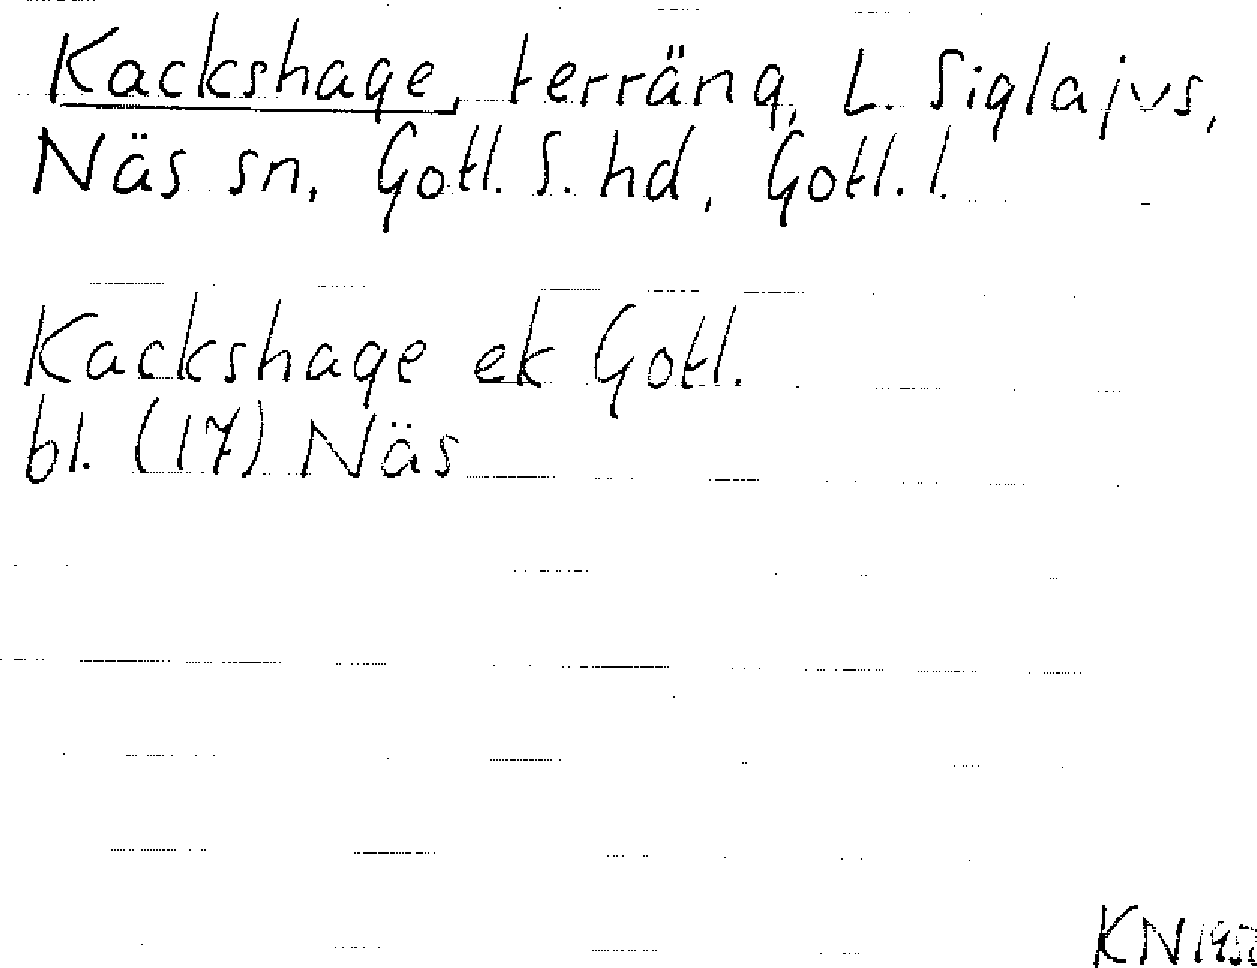 Kackshage, terräng, L. Siglajvs,
Näs sn, Gotl. S. hd, Gotl. l.
Kackshage ek Gotl.
bl. (17) Näs
KN